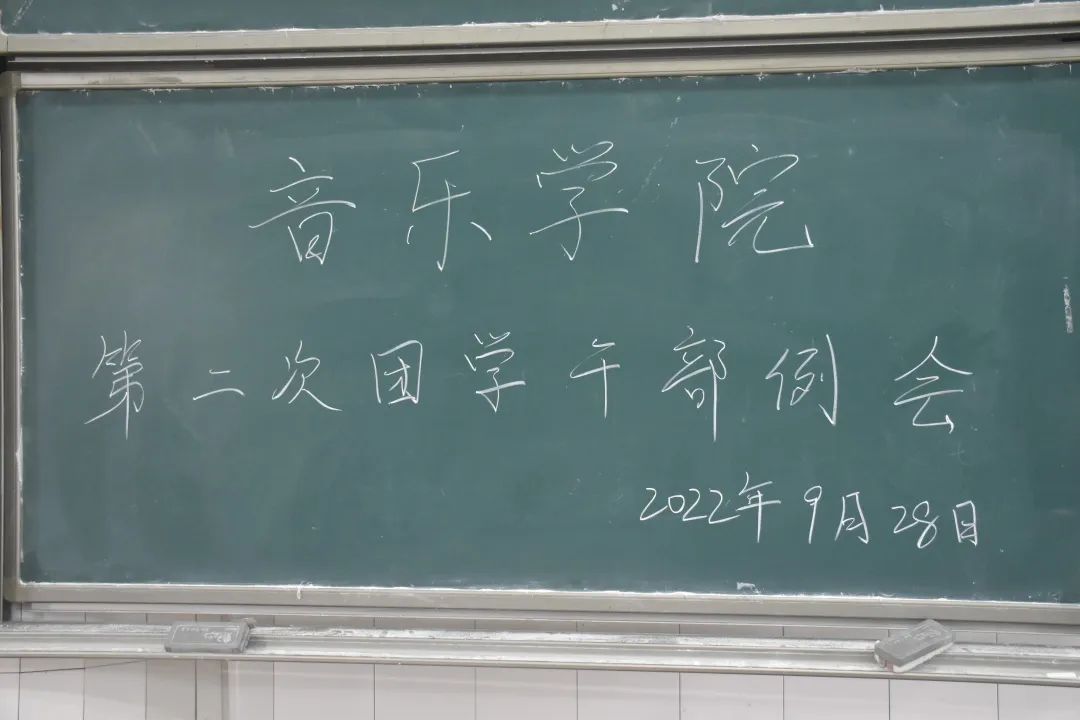 音乐学院
第二次团学干部例会
2022年9月28日